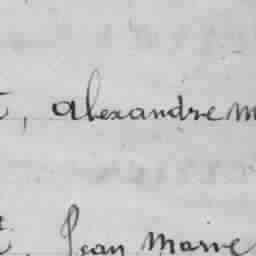 , Alexandre M
, Jean Marie